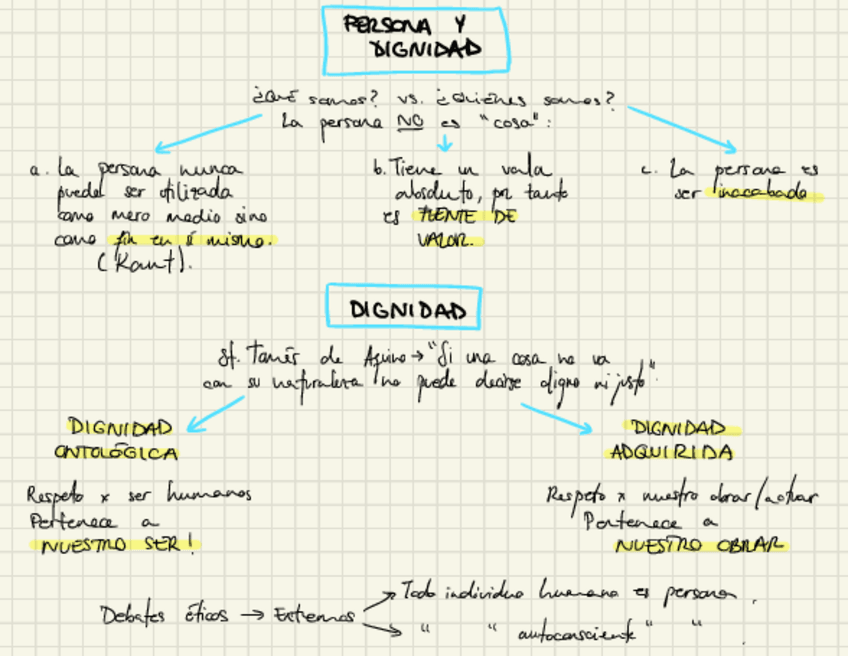 PERSONA Y
DIGNIDAD
¿Qué somos? vs. ¿Quiénes somos?
La persona NO es "cosa":
a. La persona nunca
puede ser utilizada
como mero medio sino
como fin en sí mismo.
(Kant).
b. Tiene un valor
absoluto, por tanto
es FUENTE DE
VALOR.
c. La persona es
ser inacabado
DIGNIDAD
St. Tomás de Aquino → "Si una cosa no va
con su naturaleza no puede decirse digno ni justo".
DIGNIDAD
ONTOLÓGICA
Respeto x ser humanos
Pertenece a
NUESTRO SER!
DIGNIDAD
ADQUIRIDA
Respeto x nuestro obrar/actuar
Pertenece a
NUESTRO OBRAR
Debates éticos → Extremos
Todo individuo humano es persona.
" " autoconsciente " " .